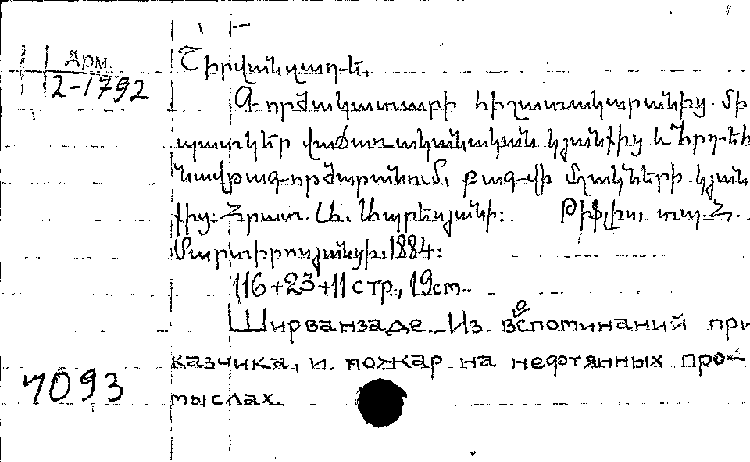 Арм.
2-1792
Շիրվանզադե,
Գործակատարի հիշատակարանից. մի
պատկեր վաճառականական կյանքից և Հրդեհ
նավթագործարանում, Բագվի մշակների կյան
քից: Հրատ. Ա. Ապրեսյանի: Թիֆլիս, տպ. Հ.
Մարտիրոսյանցի, 1884:
116+23+11 стр., 19cm.
Ширванзаде. Из воспоминаний при
казчика, и пожар на нефтянных про-
7093
мыслах.